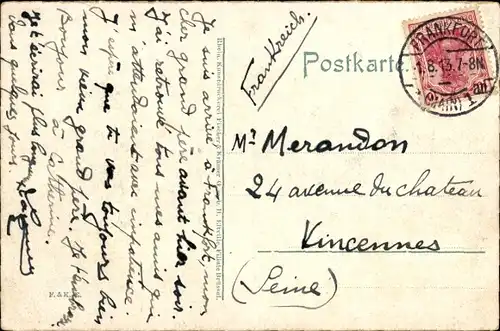 Je suis arrivé à Frankfort, mon
cher grand père avant hier soir.
J'ai retrouvé tous mes amis qui
m'attendaient avec impatience.
J'espère que tu vas toujours bien
mon vieux grand père. Je t'embrasse
Bonjour à Catherine.
Je t'écrirai plus longuement
dans quelques jours.
Frankreich.
Postkarte
FRANKFURT
1.8.13.7-8N
(MAIN) 1
Mr Merandon
24 avenue du chateau
Vincennes
(Seine)